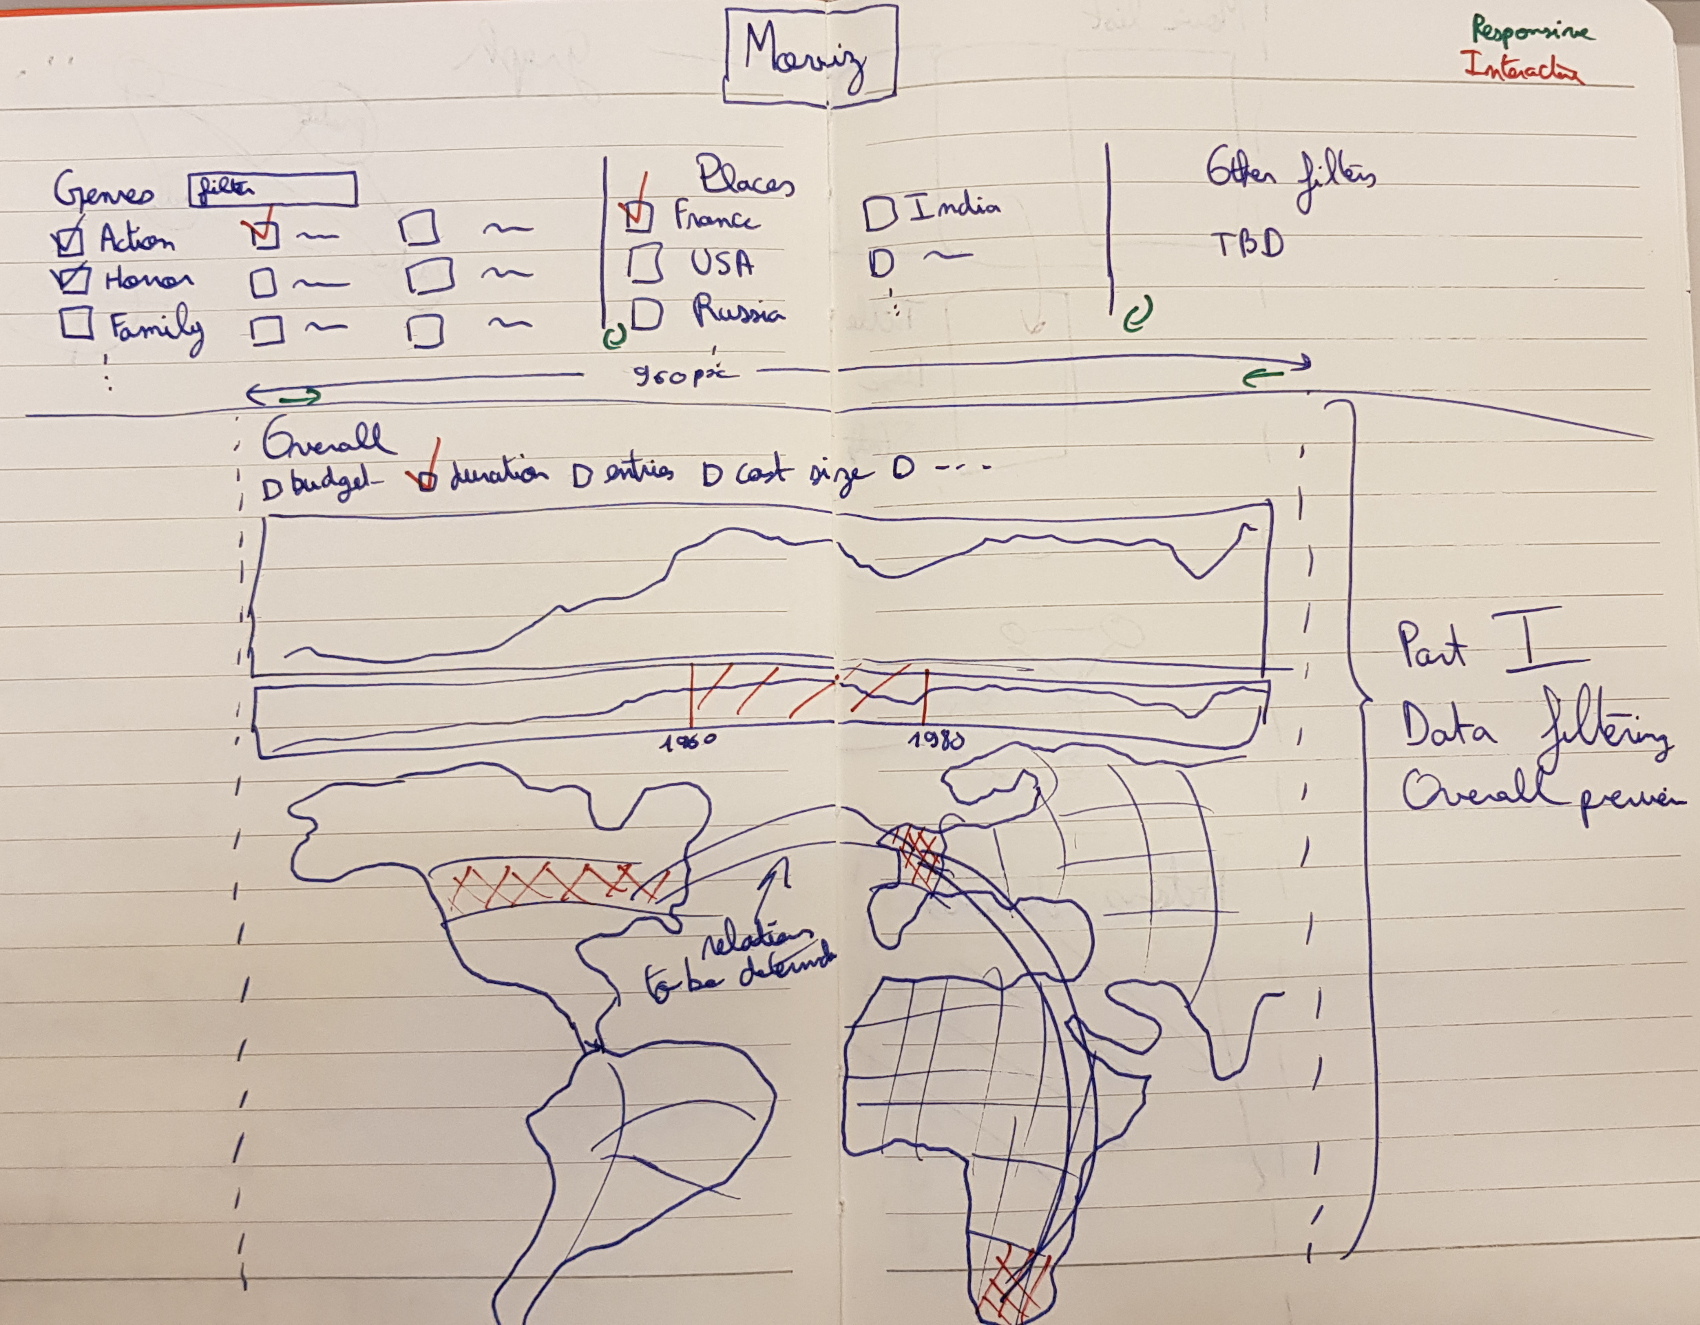 Moviz
Responsive
Interactive
Genres filter
Action
Horror
Family
Places
France
USA
Russia
India
Other filters
TBD
960 px
Overall
budget duration entries cast size ...
1960 1980
relations
to be determined
Part I
Data filtering
Overall preview